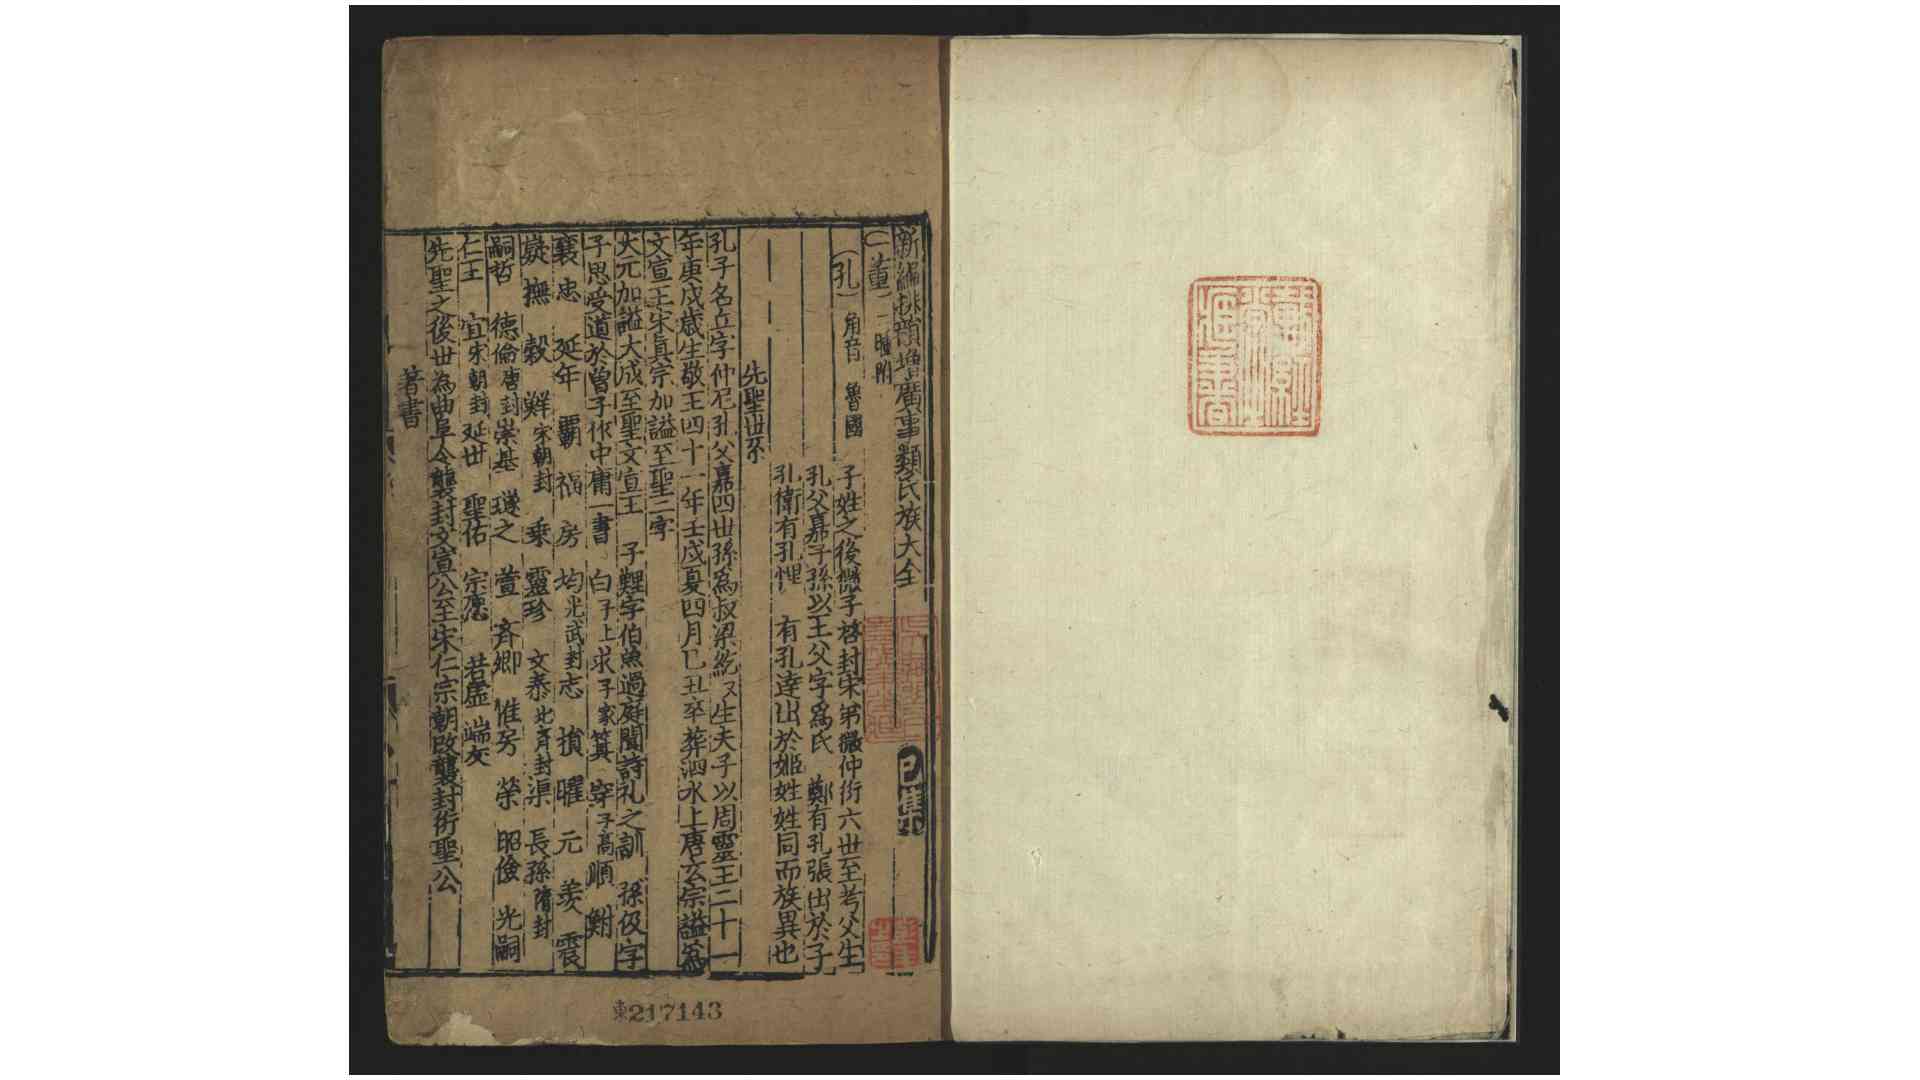 新編排韻增廣事類氏族大全
巳集
一董 二腫附
孔 角音 魯國
子姓之後微子啓封宋第微仲衍六世至考父生
孔父嘉子孫以王父字爲氏 鄭有孔張出於子
孔衛有孔悝 有孔達出於姬姓姓同而族異也
先聖世系
孔子名丘字仲尼孔父嘉四世孫爲叔梁紇又生夫子以周靈王二十一
年庚戌歲生敬王四十一年壬戌夏四月己丑卒葬泗水上唐玄宗謚為
文宣王宋真宗加謚至聖二字
大元加謚大成至聖文宣王 子鯉字伯魚過庭聞詩礼之訓 孫伋字
子思受道於曾子作中庸一書 白子上求子家箕 穿子高順 鮒
襄 忠 延年 霸 福 房 均光武封志 損 曜 元 羨 震
嶷 撫 毅 鮮宋朝封 乗 靈珍 文泰北齐封渠 長孫隋封
嗣哲 德倫唐封崇基 璲之 萱 斉卿 惟昉 榮 昭儉 光嗣
仁玉 宜宋朝封延世 聖佑 宗愿 若虛 端友
先聖之後世為曲阜令襲封文宣公至宋仁宗朝改襲封衍聖公
著書
東217143